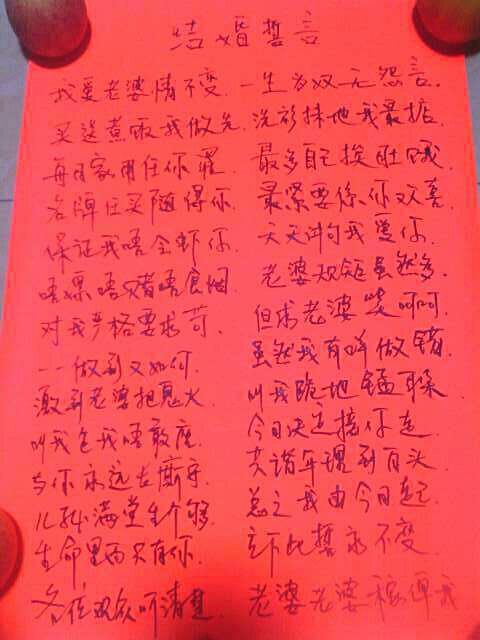 结婚誓言
我爱老婆情不变. 一生为奴无怨言.
买送煮饭我做先. 洗衫抹地我最掂.
每月家用任你 最多自己挨肚饿.
名牌任买随得你. 最紧要系你欢喜.
保证我唔会虾你. 天天讲句我爱你.
唔嫖唔赌唔食烟. 老婆规矩虽然多.
对我严格要求苛. 但求老婆笑呵呵.
一一做到又如何. 虽然我有时做错.
激到老婆把鬼火 叫我跪地锰耳朵.
叫我企我唔敢座. 今日决定接你走.
与你永远去厮守. 共谐年理到白头.
儿孙满堂生个够. 总之我由今日起.
生命里面只有你. 立下此誓永不变.
各位观众听清楚. 老婆老婆稼俾我